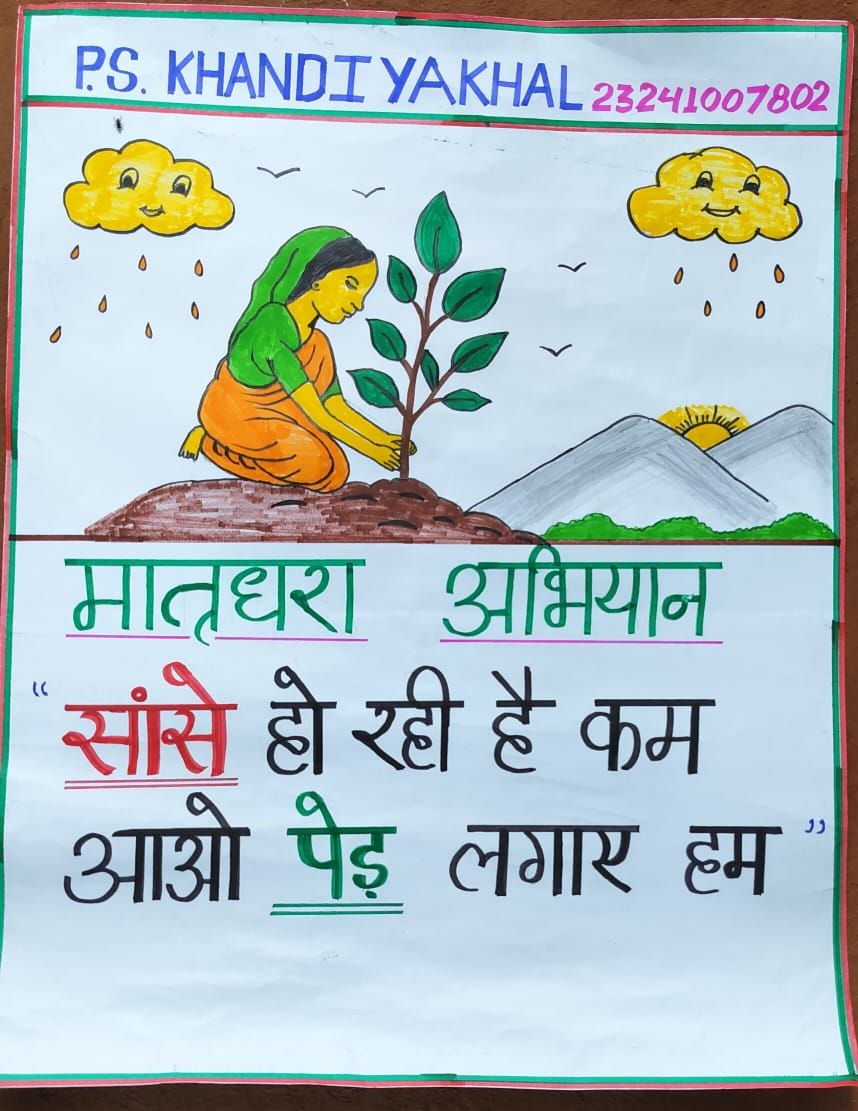 P.S. KHANDIYAKHAL 23241007802
मातृधरा अभियान
“सांसे हो रही है कम
आओ पेड़ लगाए हम”